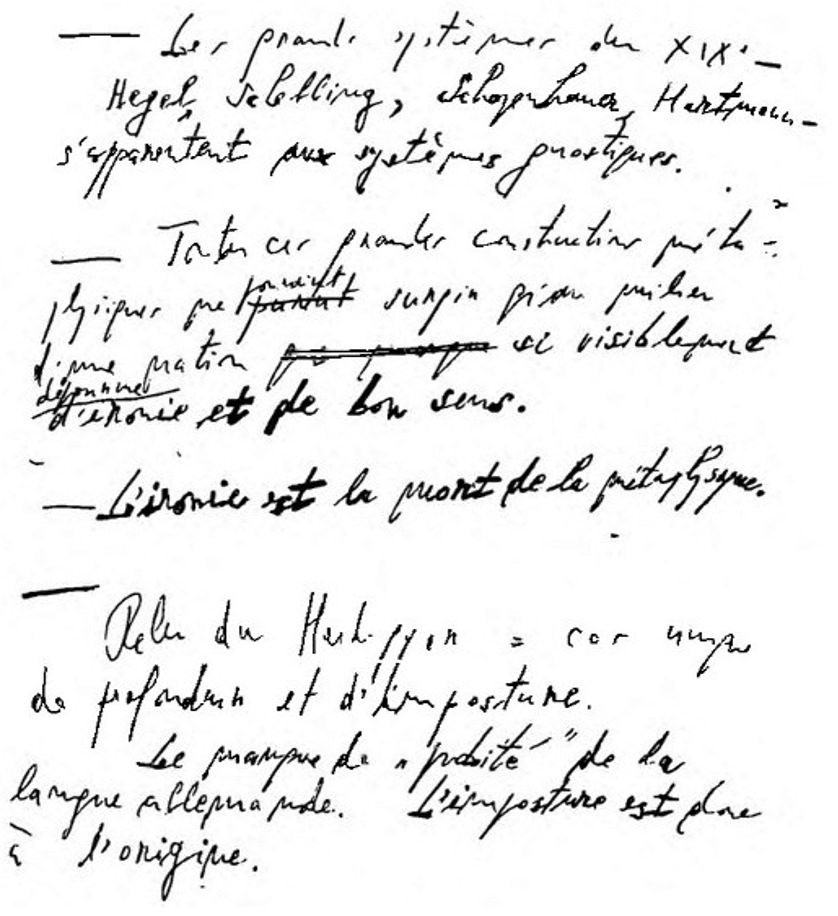 — Les grands systèmes du XIXe —
Hegel, Schelling, Schopenhauer, Hartmann —
s'apparentent aux systèmes gnostiques.
— Toutes ces grandes constructions méta-
physiques ne pouvaient surgir qu'au milieu
d'une nation si visiblement
dépourvue
d'ironie et de bon sens.
— L'ironie est la mort de la métaphysique.
—
Relu du Heidegger = cas unique
de profondeur et d'imposture.
Le manque de "probité" de la
langue allemande. L'imposture est donc
à l'origine.